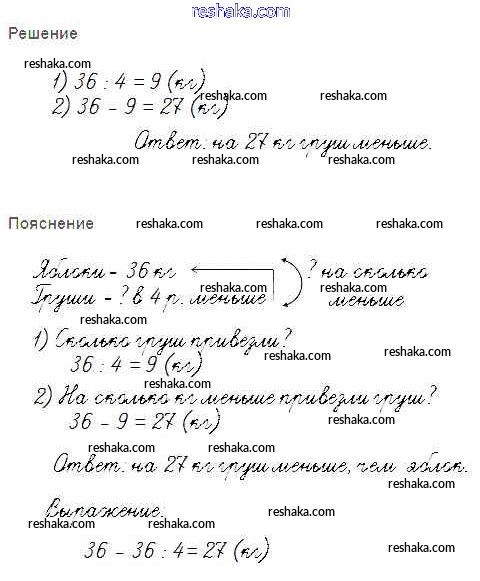 reshaka.com
Решение
reshaka.com
1) 36 : 4 = 9 (кг)
reshaka.com reshaka.com
2) 36 - 9 = 27 (кг)
Ответ: на 27 кг груш меньше.
reshaka.com reshaka.com reshaka.com
Пояснение reshaka.com reshaka.com reshaka.com
Яблоки - 36 кг ? на сколько
reshaka.com reshaka.com
Груши - ? в 4 р. меньше меньше
reshaka.com
1) Сколько груш привезли?
reshaka.com reshaka.com
36 : 4 = 9 (кг)
reshaka.com
2) На сколько кг меньше привезли груш?
36 - 9 = 27 (кг) reshaka.com
reshaka.com reshaka.com
Ответ: на 27 кг груш меньше, чем яблок.
reshaka.com
Выпажение.
reshaka.com reshaka.com reshaka.com
36 - 36 : 4 = 27 (кг) reshaka.com